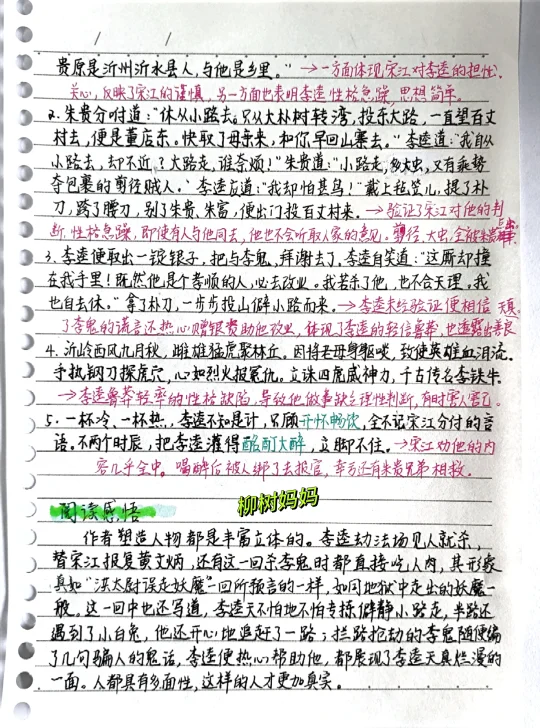 贵原是沂州沂水县人,与他是乡里。" →一方面体现宋江对李逵的担忧、
关心,反映了宋江的谨慎,另一方面也表明李逵性格急躁,思想简单。
2.朱贵分咐道:"休从小路去。只从大朴树转湾,投东大路,一直望百丈
村去,便是董店东。快取了母亲来,和你早回山寨去。"李逵道:"我自从
小路去,却不近?大路走,谁奈烦!"朱贵道:"小路走,多大虫,又有乘势
夺包裹的剪径贼人。"李逵应道:"我却怕甚鸟!"戴上毡笠儿,提了朴
刀,跨了腰刀,别了朱贵、朱富,便出门投百丈村来。→验证了宋江对他的判
断,性格急躁,即使有人与他同去,他也不会听取人家的意见。剪径、大虫,全被朱贵
3.李逵便取出一锭银子,把与李鬼,拜谢去了。李逵自笑道:"这厮却撞
在我手里!既然他是个孝顺的人,必去改业。我若杀了他,也不合天理。我
也自去休。"拿了朴刀,一步步投山僻小路而来。→李逵未经验证便相信
了李鬼的谎言还热心赠银资助他改业,体现了李逵的轻信鲁莽,也透露出善良
天真
4.沂岭西风九月秋,雌雄猛虎聚林丘。因将老母身躯啖,致使英雄血泪流。
手执钢刀探虎穴,心如烈火报冤仇。立诛四虎威神力,千古传名李铁牛。
→李逵鲁莽轻率的性格缺陷,导致他做事缺乏理性判断,有时害人害己。
5.一杯冷、一杯热,李逵不知是计,只顾开怀畅饮,全不记宋江分付的言
语。不两个时辰,把李逵灌得酩酊大醉,立脚不住。→宋江劝他的内
容几乎全中。喝醉后被人绑了去报官,幸亏还有朱贵兄弟相救。
柳树妈妈
阅读感悟
作者塑造人物都是丰富立体的。李逵劫法场见人就杀,
替宋江报复黄文炳,还有这一回杀李鬼时都直接吃人肉,其形象
真如"洪太尉误走妖魔"回所预言的一样,如同地狱中走出的妖魔一
般。这一回中也还写道,李逵天不怕地不怕专拣僻静小路走,半路还
遇到了小白兔,他还开心地追赶了一路;拦路抢劫的李鬼随便编
了几句骗人的鬼话,李逵便热心帮助他,都展现了李逵天真烂漫的
一面。人都具有多面性,这样的人才更加真实。